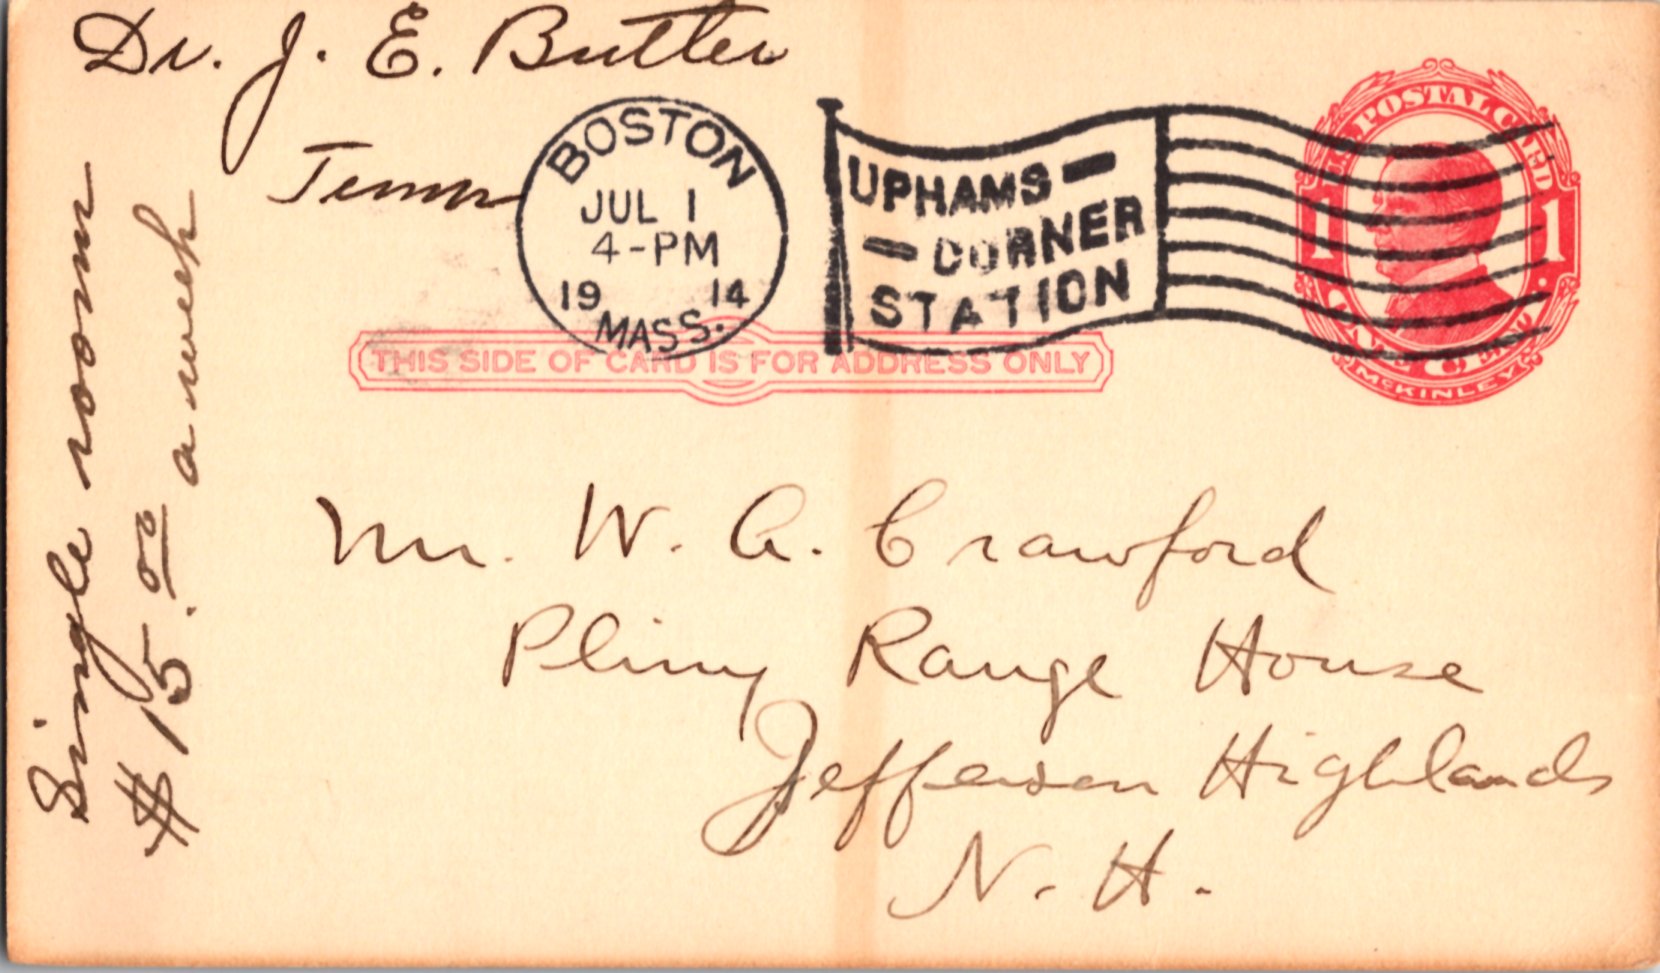 Dr. J. E. Butler
BOSTON
JUL 1
4-PM
19 14
MASS.
UPHAMS
CORNER
STATION
U.S. POSTAL CARD
1 1
ONE CENT
McKINLEY
THIS SIDE OF CARD IS FOR ADDRESS ONLY
Mr. W. A. Crawford
Pliny Range House
Jefferson Highlands
N. H.
Single room
$15.00 a week